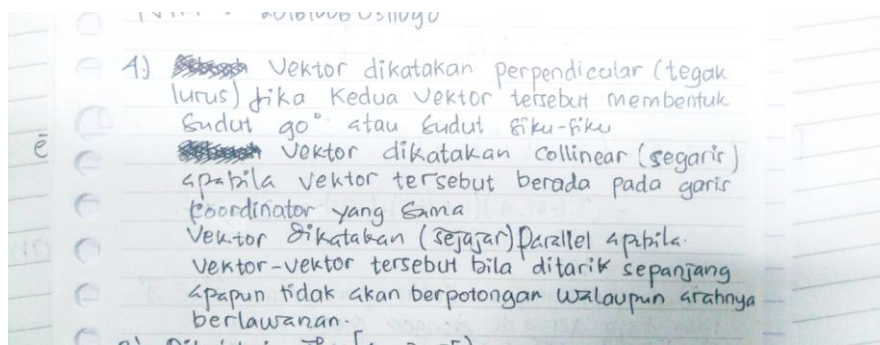 A.) Vektor dikatakan perpendicular (tegak
lurus) jika kedua vektor tersebut membentuk
sudut 90° atau sudut siku-siku
Vektor dikatakan collinear (segaris)
apabila vektor tersebut berada pada garis
koordinator yang sama
Vektor dikatakan (sejajar) Parallel apabila
vektor-vektor tersebut bila ditarik sepanjang
apapun tidak akan berpotongan walaupun arahnya
berlawanan.